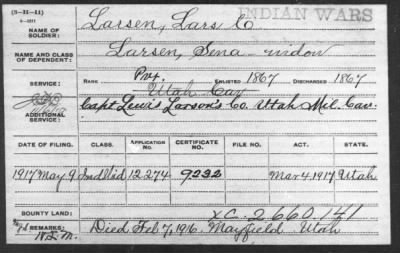 (3-21-11)
Larsen, Lars C INDIAN WARS
NAME OF
SOLDIER:
NAME AND CLASS
OF DEPENDENT:
Larsen, Sena - widow
SERVICE:
RANK Pvt. ENLISTED 1867 DISCHARGED 1867
Utah Cav
ADDITIONAL
SERVICE:
Capt Lewis Larson's Co. Utah Mil. Cav.
DATE OF FILING. CLASS. APPLICATION
No. CERTIFICATE
No. FILE No. ACT. STATE.
1917 May 9 Ind Wid 12274 9232 Mar 4, 1917 Utah
BOUNTY LAND:
XC-2660.141
REMARKS: Died Feb 7, 1916. Mayfield Utah